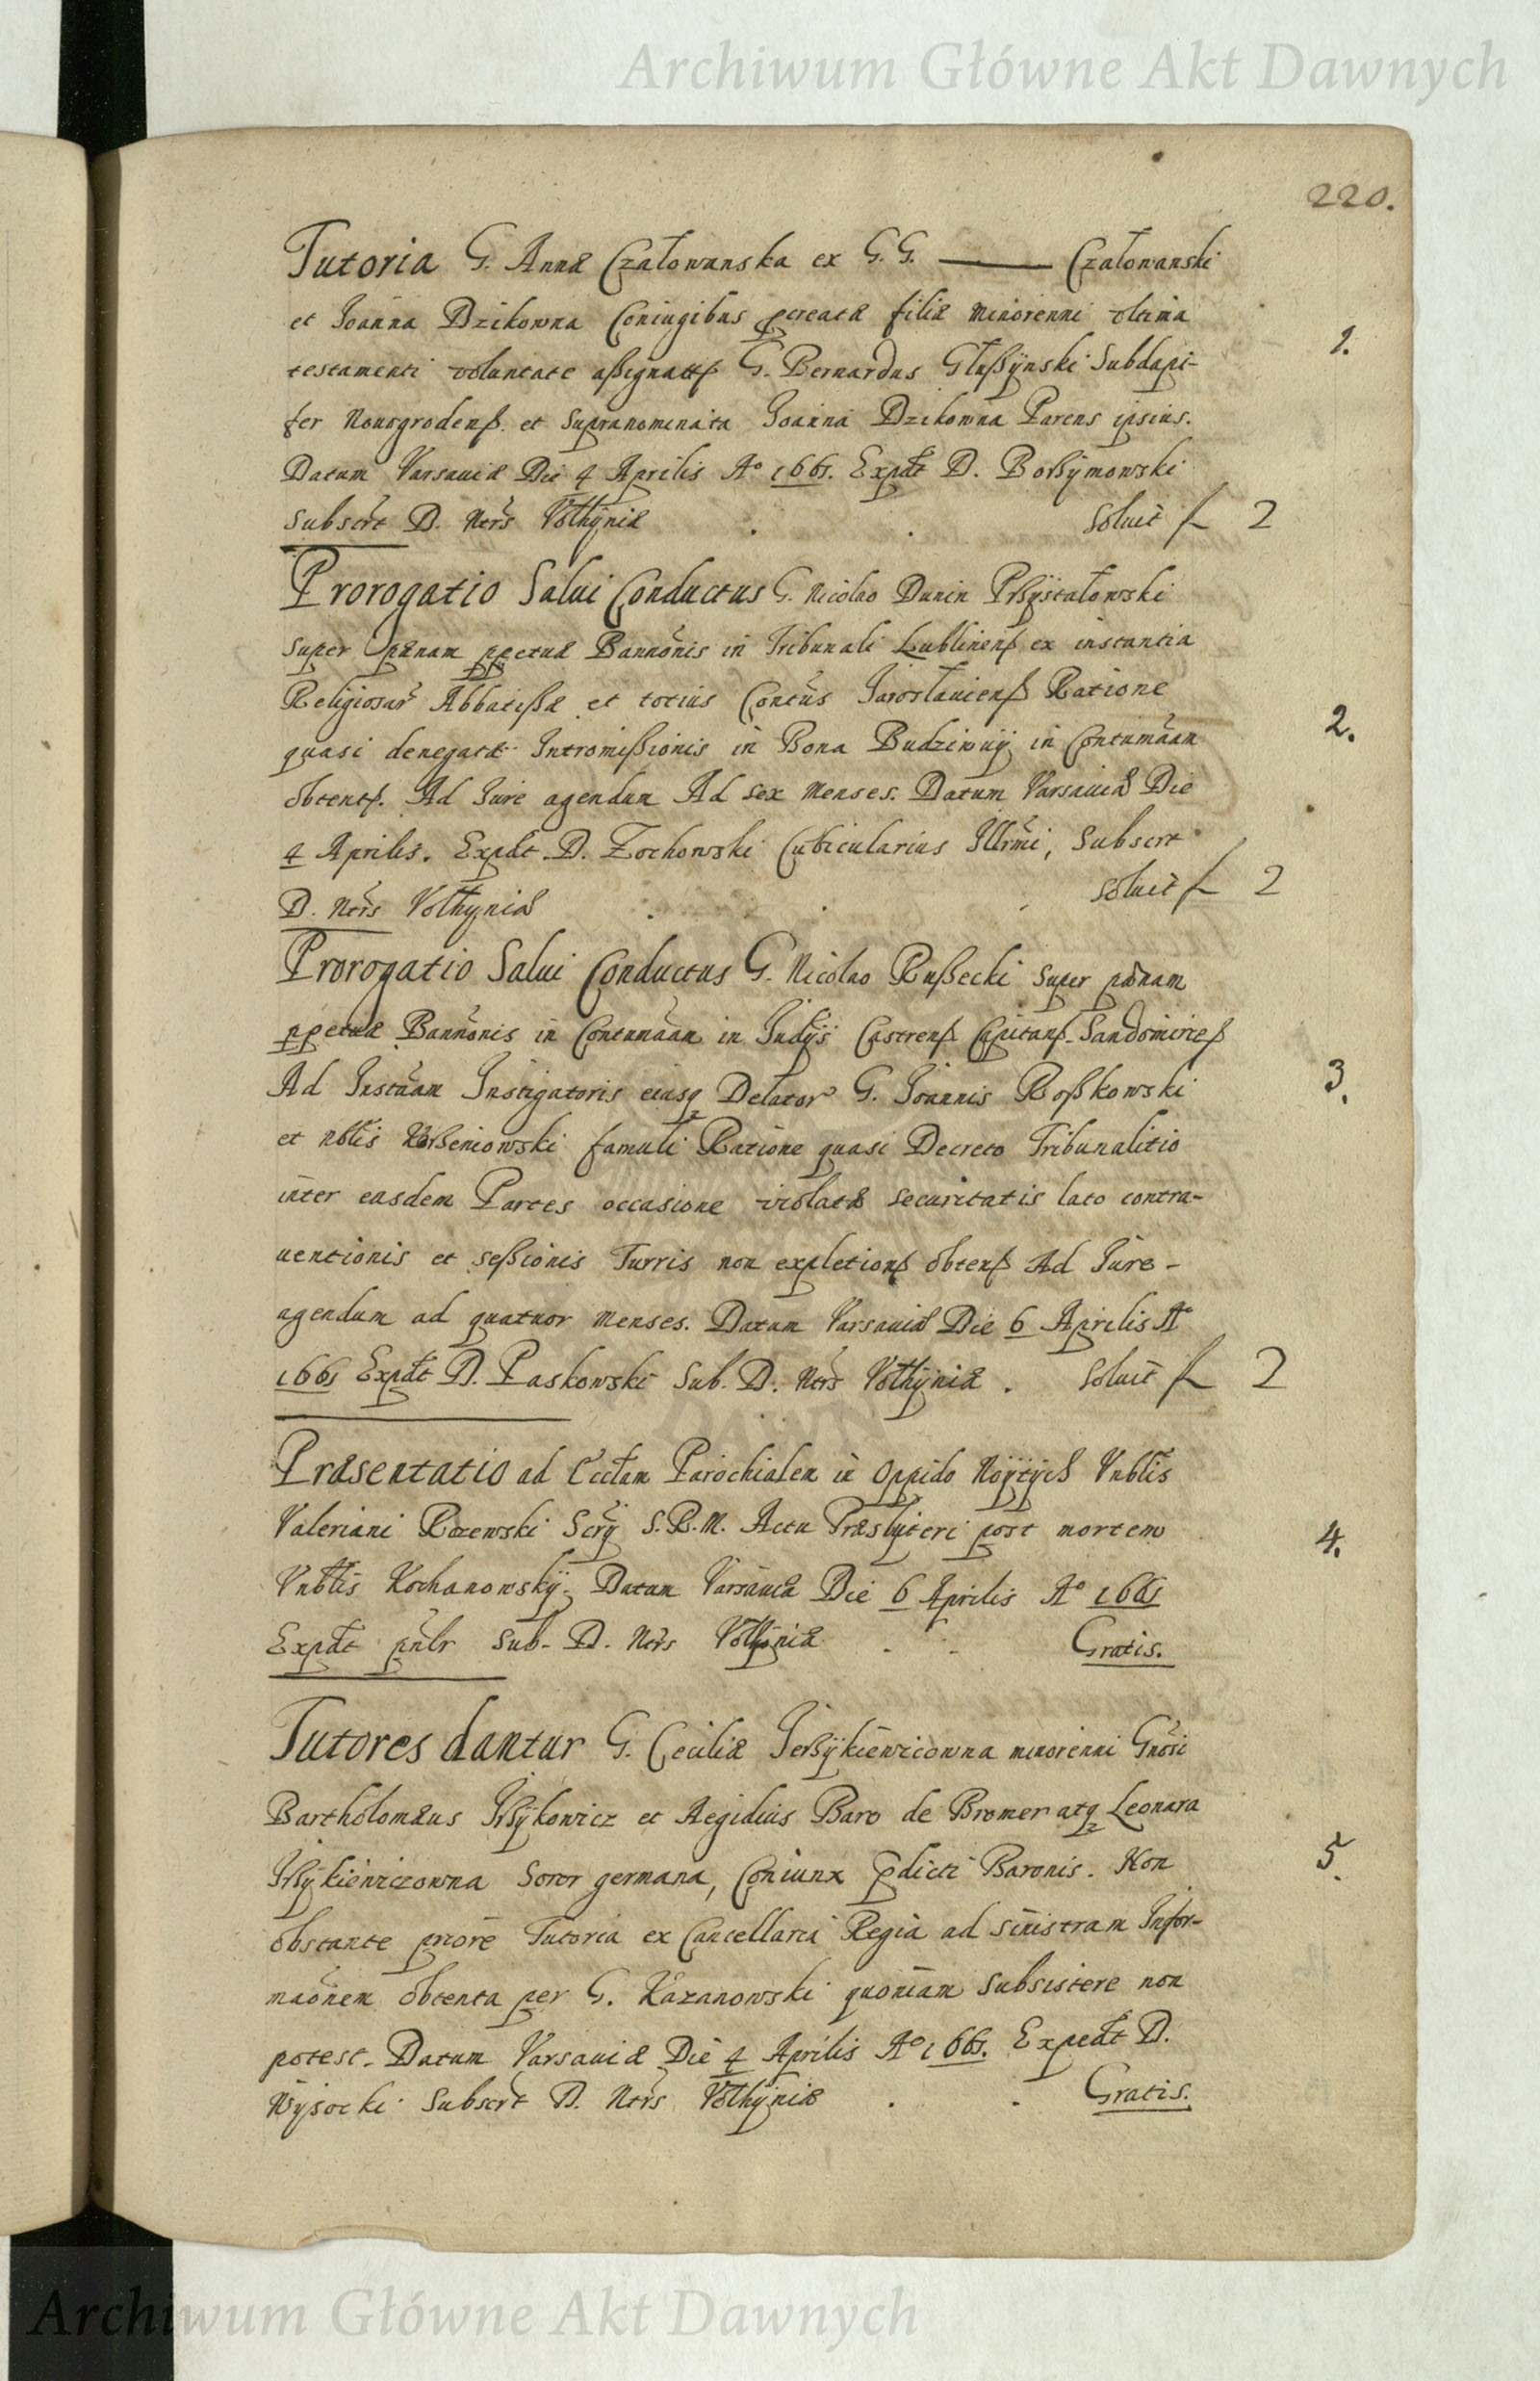 Archiwum Główne Akt Dawnych
220.
Tutoria G. Annæ Czałowanska ex G. G. ——— Czałowanski
et Joanna Dzikowna Coniugibus pcreatæ filiæ minorenni vltima
1.
testamenti voluntate aßignatß G. Bernardus Głußÿnski Subdapi-
fer Nouogrodenß. et Supranominata Joanna Dzikowna Parens ipsius.
Datum Varsauiæ Die 4 Aprilis Aº 1661. Expdt D. Borßymowski
Subscrt D. Ners Volhÿniæ . . Soluit f 2
Prorogatio Salui Conductus G. Nicolao Dunin Prßÿstałowski
Super pænam ppetuæ Bannonis in Tribunali Lublinenß ex instantia
Religiosar Abbatißæ et totius Contus Jarosłauienß Ratione
2.
quasi denegatæ Intromißionis in Bona Budziwuÿ in Contumãam
obtentß. Ad Jure agendum Ad sex menses. Datum Varsauiæ Die
4 Aprilis. Expdt D. Zochowski Cubicularius Illrmi, Subscrt
D. Ners Volhyniæ . . . Soluit f 2
Prorogatio Salui Conductus G. Nicolao Rußecki Super pænam
ppetuæ Bannonis in Contumãam in Judÿs Castrenß Capitanß Sandomirieß
3.
Ad Instãam Instigatoris eiusq Delator G. Joannis Boßkowski
et nblis Korßeniowski famuli Ratione quasi Decreto Tribunalitio
inter easdem Partes occasione violatæ securitatis lato contra-
uentionis et seßionis Turris non expletionß obtenß Ad Jure-
agendum ad quatuor menses. Datum Varsauiæ Die 6 Aprilis Aº
1661 Expdt D. Paskowski Sub. D. Ners Volhÿniæ . Soluit f 2
Præsentatio ad Ecclam Parochialem in Oppido Vnblis
Valeriani Scrÿ S. R. M. Actu Præsbyteri post mortem
4.
Vnblis Kochanowskÿ. Datum Varsauiæ Die 6 Aprilis Aº 1661
Expdt pnlr Sub. D. Ners Volhÿniæ . . Gratis.
Tutores dantur G. Ceciliæ Jerßÿkiewicowna minorenni Gnosi
Bartholomæus Jrßÿkowicz et Aegidius Baro de Bromer atq Leonara
5.
Jrßÿkiewiczowna Soror germana, Coniunx pdicti Baronis. Non
obstante priore Tutoria ex Cancellaria Regia ad sinistram Infor-
maõnem obtenta per G. Kazanowski quoniam subsistere non
potest. Datum Varsauiæ Die 4 Aprilis Aº 1661. Expedt D.
Wÿsocki Subscrt D. Ners Volhÿniæ . . Gratis.
Archiwum Główne Akt Dawnych